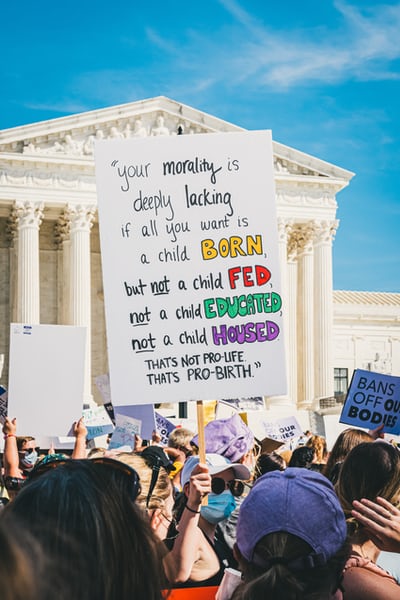 "your morality is
deeply lacking
if all you want is
a child BORN,
but not a child FED,
not a child EDUCATED,
not a child HOUSED
THAT'S NOT PRO-LIFE.
THAT'S PRO-BIRTH."
BANS
OFF OUR
BODIES